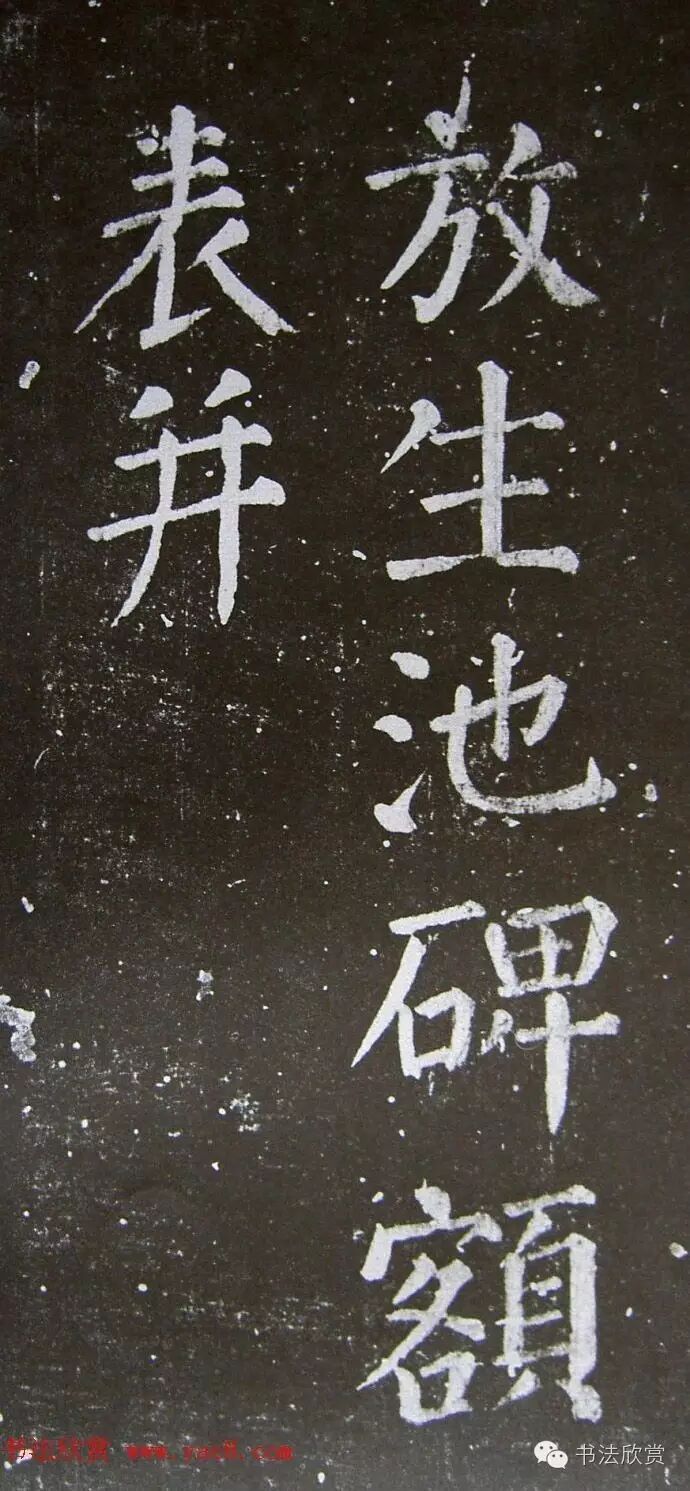 放生池碑額
表并
书法欣赏
书法欣赏